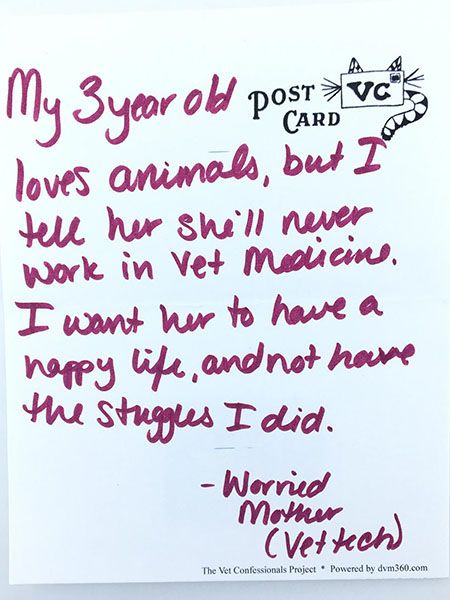 My 3 year old
POST CARD
VC
loves animals, but I
tell her she'll never
work in Vet Medicine.
I want her to have a
happy life, and not have
the stuggles I did.
- Worried
Mother
(Vet tech)
The Vet Confessionals Project * Powered by dvm360.com